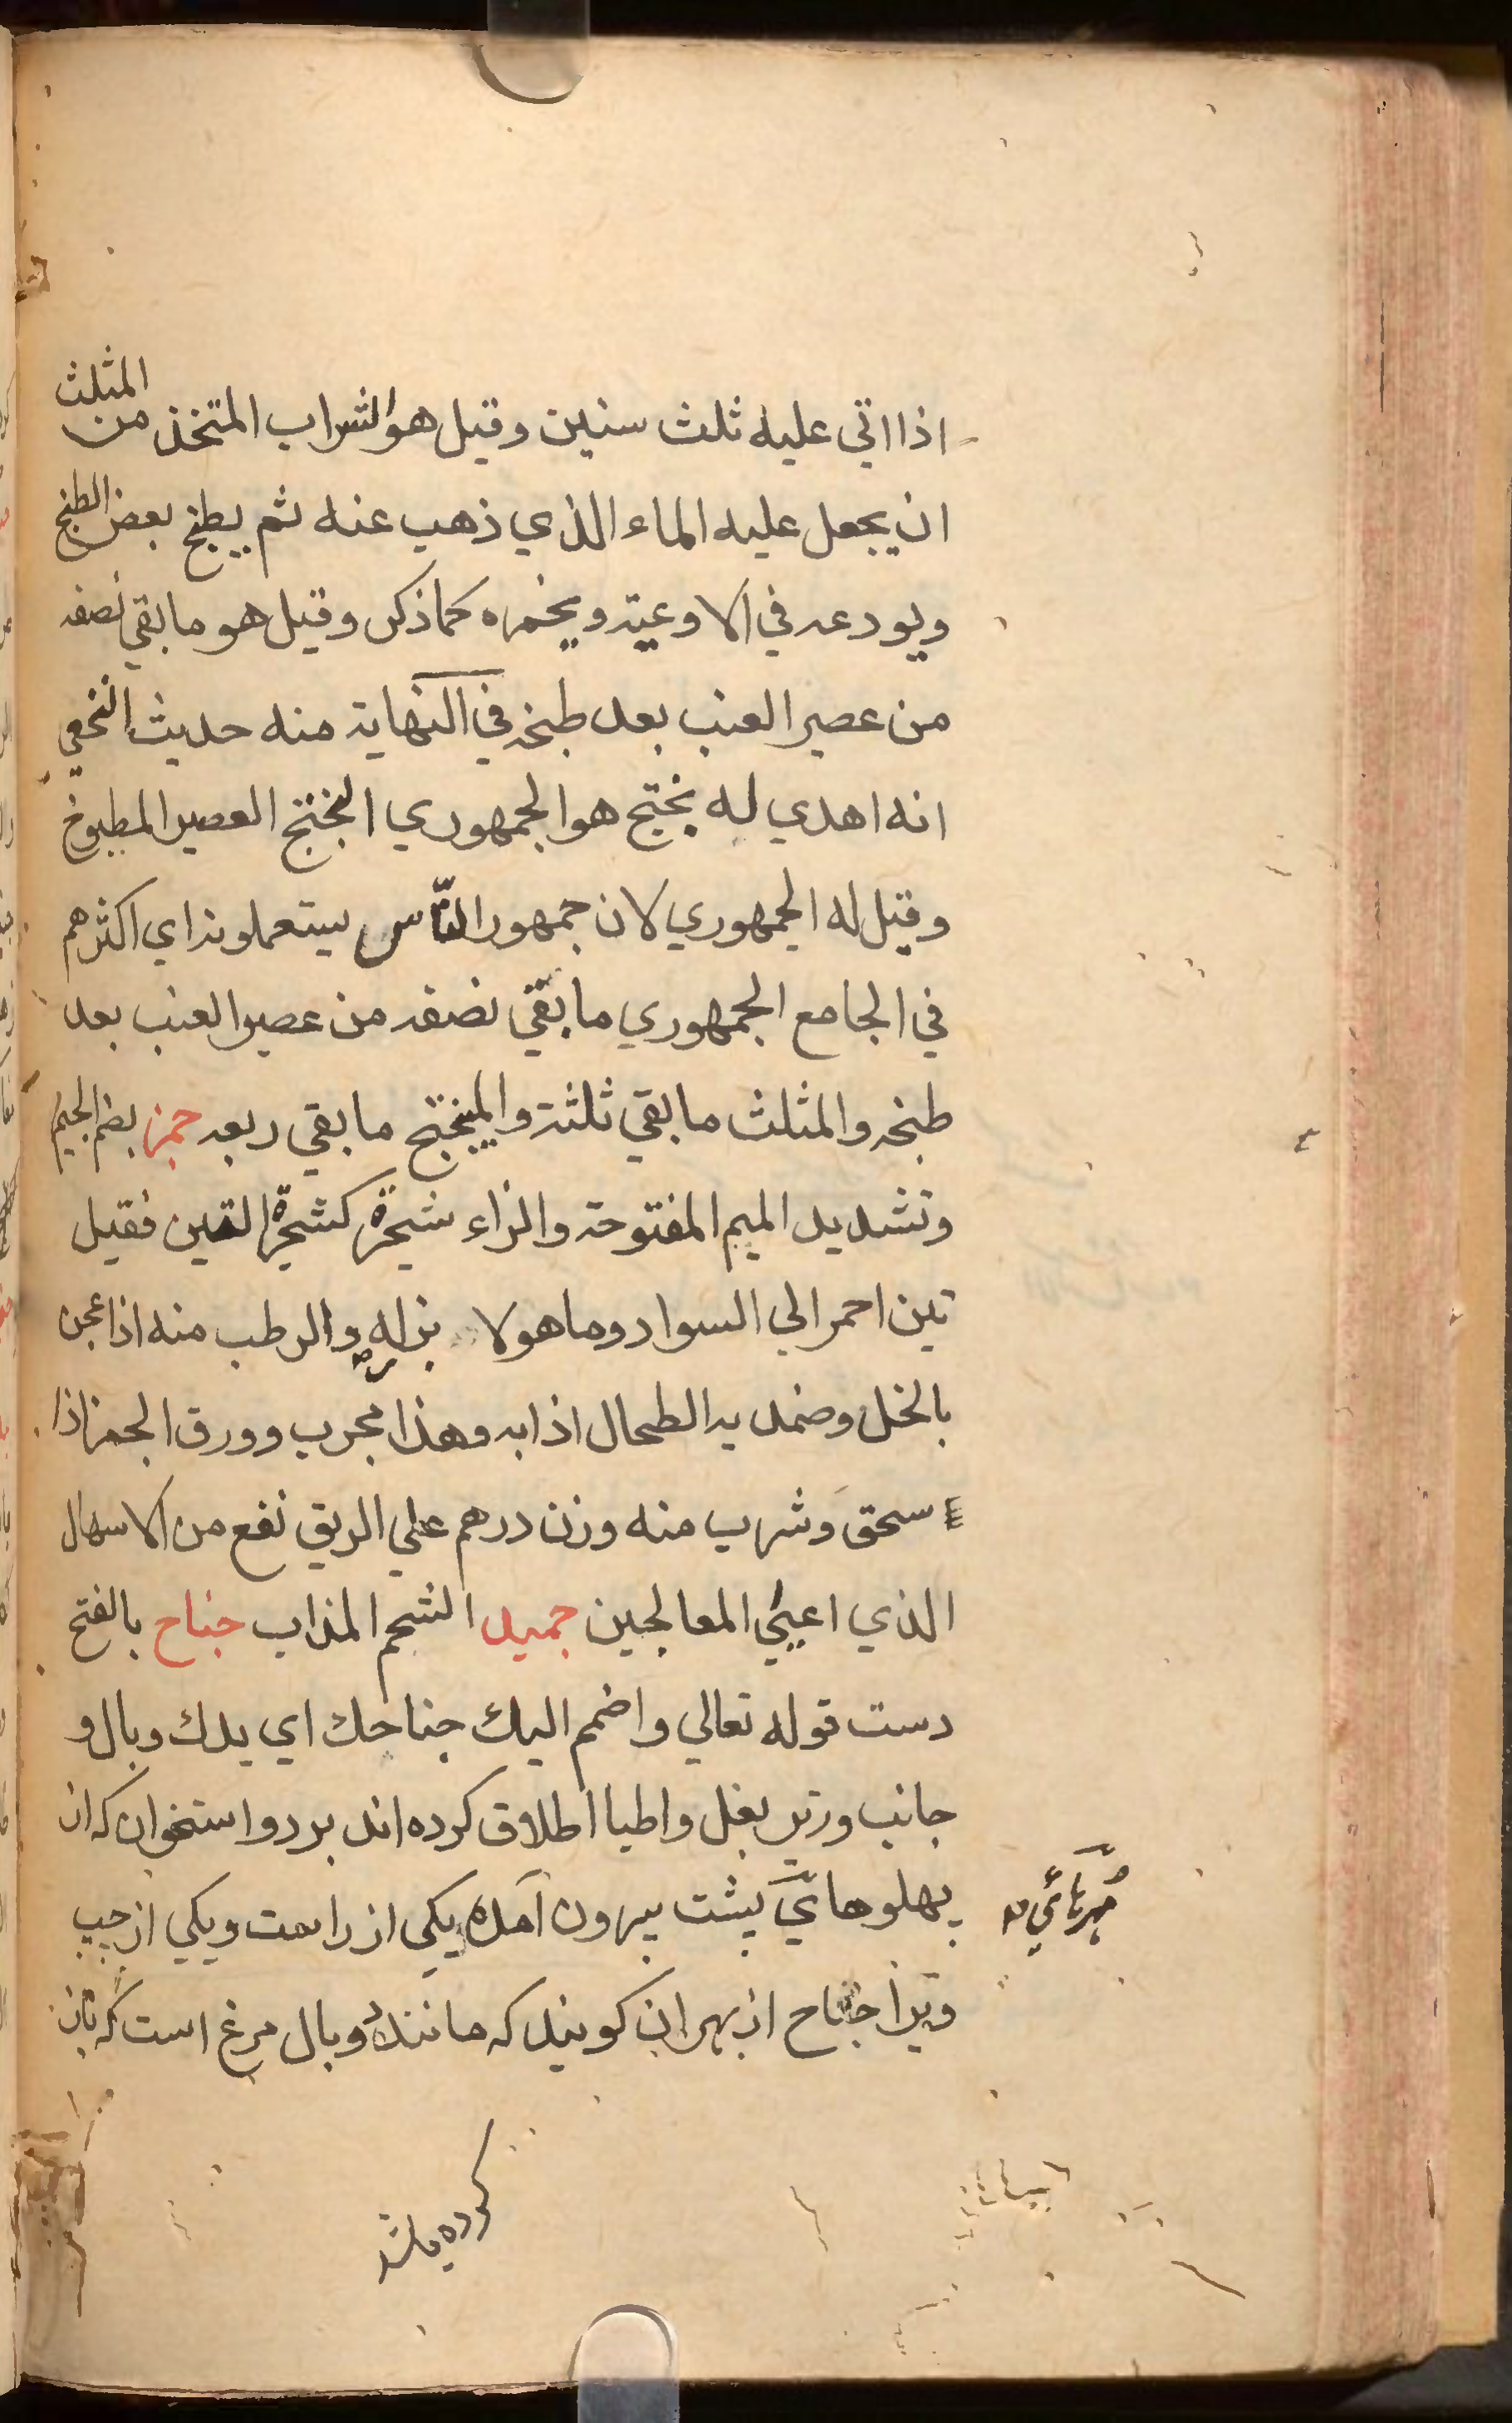 اذا اتي عليه ثلث سنين وقيل هو الشراب المتخذ من المثلث
ان يجعل عليه الماء الذي ذهب عنه ثم يطبخ بعض الطبخ
ويودعه في الاوعية ويخمره كما ذكر وقيل هو ما بقي نصفه
من عصير العنب بعد طبخه في النهاية منه حديث النخعي
انه اهدي له بختج هو الجمهوري البختج العصير المطبوخ
وقيل له الجمهوري لان جمهور النّاس يستعملونه اي اكثرهم
في الجامع الجمهوري ما بقي نصفه من عصير العنب بعد
طبخه والمثلث ما بقي ثلثة والميبختج ما بقي ربعه جمز بضم الجيم
وتشديد الميم المفتوحة والزاء شجرة كشجرة التين فقيل
تين احمر الي السواد وما هو لا والرطب منه اذا عجن
بالخل وضمد به الطحال اذابه وهذا مجرب وورق الجمز اذا
سحق وشرب منه وزن درهم علي الريق نفع من الاسهال
الذي اعيي المعالجين جميد الشحم المذاب جناح بالفتح
دست قوله تعالي واضمم اليك جناحك اي يدك وبال و
جانب وزير بغل واطبا اطلاق كرده اند بر دو استخوان كه از
پهلوهايّ پشت بيرون آمده يكي از راست ويكي از چپ
مهرهائي
ويرا جناح از بهر ان كويند كه ماننده وبال مرغ است كه باز
كرده باشد